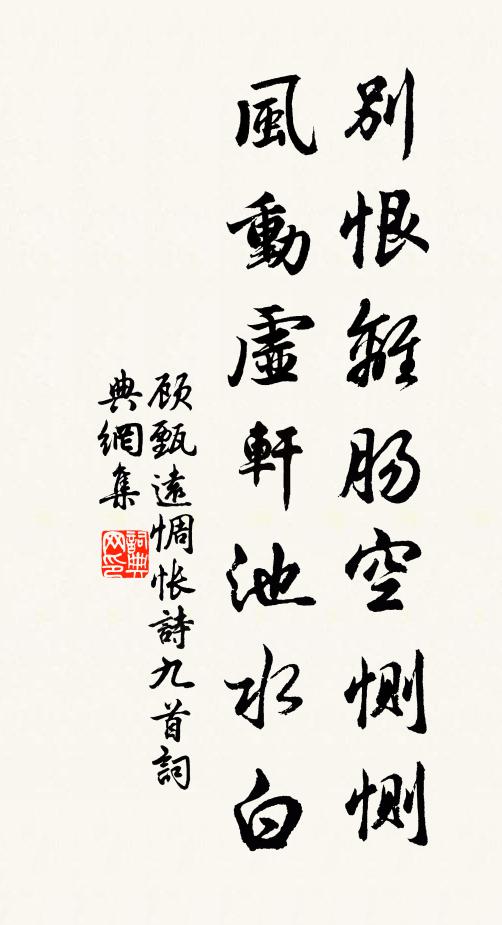 別恨離腸空惻惻
風動虛軒池水白
顾甄遠惆怅詩九首詞
典網集
詞典
网印